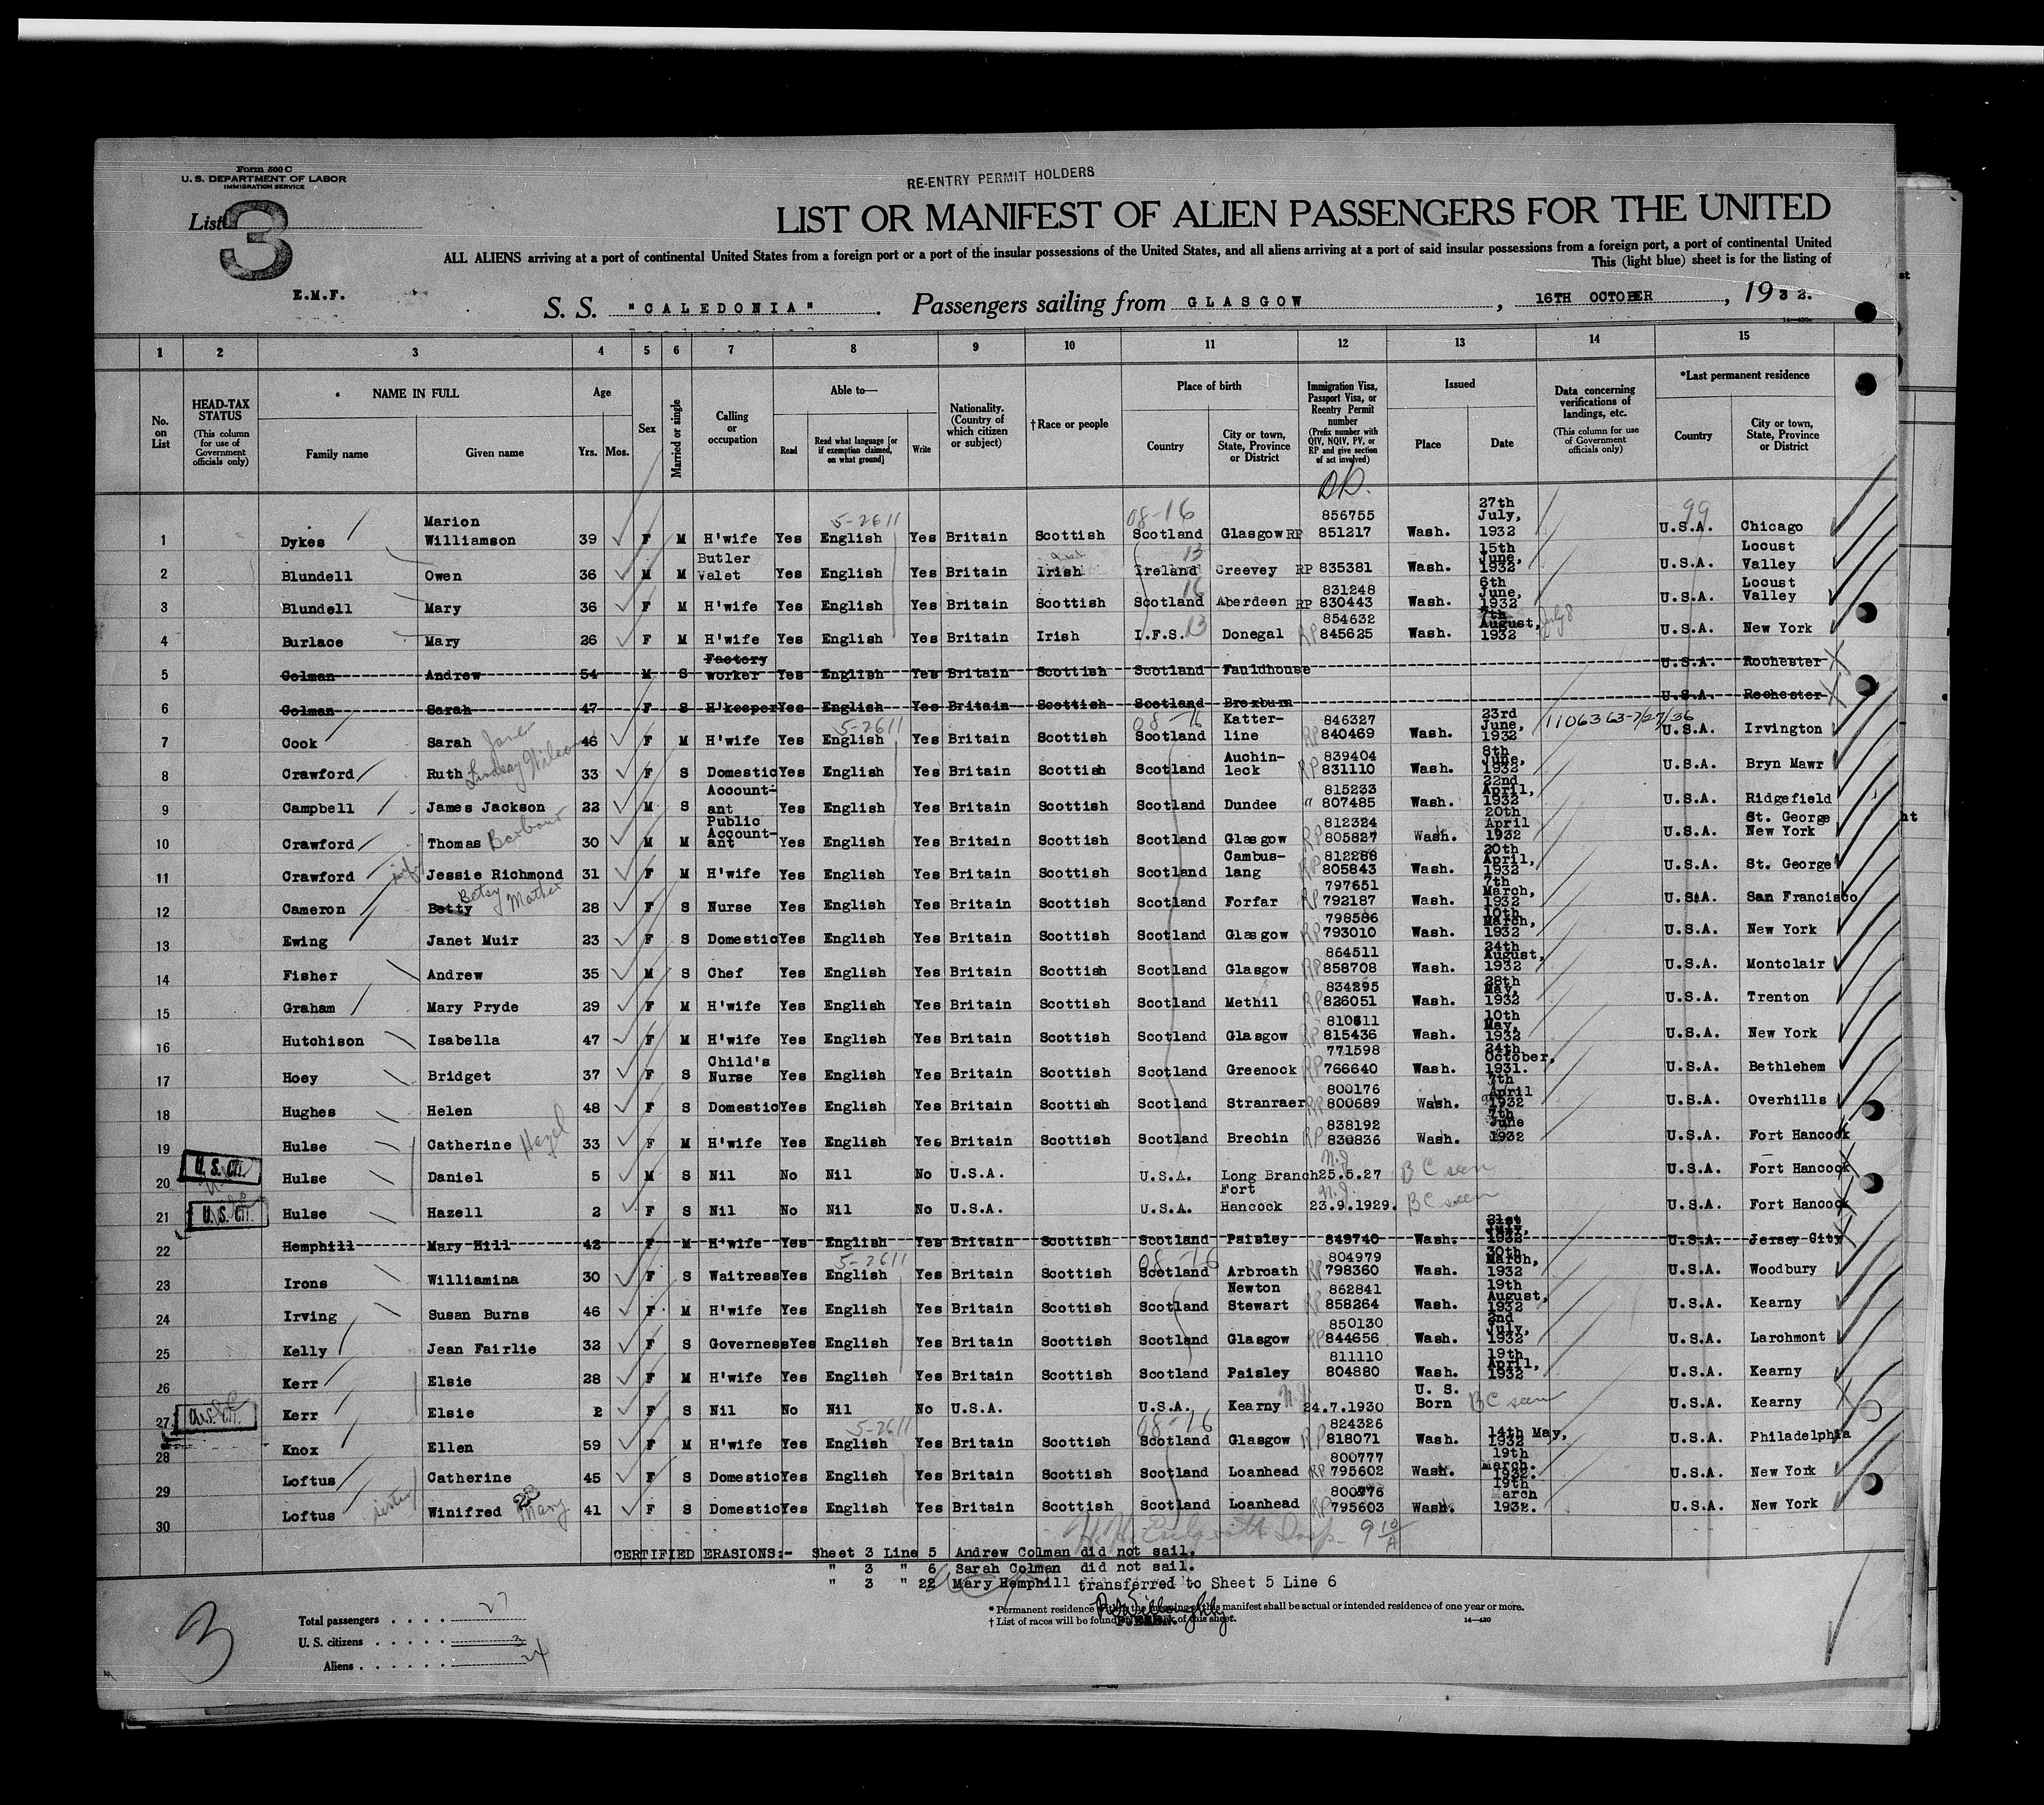 Form 500 C
U. S. DEPARTMENT OF LABOR
IMMIGRATION SERVICE
RE-ENTRY PERMIT HOLDERS
List 3
LIST OR MANIFEST OF ALIEN PASSENGERS FOR THE UNITED
ALL ALIENS arriving at a port of continental United States from a foreign port or a port of the insular possessions of the United States, and all aliens arriving at a port of said insular possessions from a foreign port, a port of continental United
This (light blue) sheet is for the listing of
E.M.F.
S. S. "CALEDONIA". Passengers sailing from GLASGOW, 16TH OCTOBER, 1932.
1 2 3 4 5 6 7 8 9 10 11 12 13 14 15
No. on List
HEAD-TAX STATUS (This column for use of Government officials only)
NAME IN FULL Family name Given name
Age Yrs. Mos.
Sex
Married or single
Calling or occupation
Able to— Read Read what language [or if exemption claimed, on what ground] Write
Nationality. (Country of which citizen or subject)
†Race or people
Place of birth Country City or town, State, Province or District
Immigration Visa, Passport Visa, or Reentry Permit number (Prefix number with QIV, NQIV, PV, or RP and give section of act involved)
Issued Place Date
Data concerning verifications of landings, etc. (This column for use of Government officials only)
*Last permanent residence Country City or town, State, Province or District
5-2611 08-16 99
1 Dykes Marion Williamson 39 F M H'wife Yes English Yes Britain Scottish Scotland Glasgow RP 856755 851217 Wash. 27th July, 1932 U.S.A. Chicago
2 Blundell Owen 36 M M Butler Valet Yes English Yes Britain Irish Ireland 13 Greevey RP 835381 Wash. 15th June, 1932 U.S.A. Locust Valley
3 Blundell Mary 36 F M H'wife Yes English Yes Britain Scottish Scotland 16 Aberdeen RP 831248 830443 Wash. 6th June, 1932 U.S.A. Locust Valley
4 Burlace Mary 26 F M H'wife Yes English Yes Britain Irish I.F.S. 13 Donegal RP 854632 845625 Wash. 7th August, 1932 July 8 U.S.A. New York
5 Colman Andrew 54 M S Factory worker Yes English Yes Britain Scottish Scotland Fauldhouse U.S.A. Rochester
6 Colman Sarah 47 F S H'keeper Yes English Yes Britain Scottish Scotland Broxburn U.S.A. Rochester
5-2611 08-16
7 Cook Sarah Jane 46 F M H'wife Yes English Yes Britain Scottish Scotland Katter-line RP 846327 840469 Wash. 23rd June, 1932 1106363-7/27/36 U.S.A. Irvington
8 Crawford Ruth Lindsay Wilson 33 F S Domestic Yes English Yes Britain Scottish Scotland Auchin-leck RP 839404 831110 Wash. 8th June, 1932 U.S.A. Bryn Mawr
9 Campbell James Jackson 22 M S Account-ant Yes English Yes Britain Scottish Scotland Dundee " 815233 807485 Wash. 22nd April, 1932 U.S.A. Ridgefield
10 Crawford Thomas Barbour 30 M M Public Account-ant Yes English Yes Britain Scottish Scotland Glasgow RP 812324 805827 Wash. 20th April 1932 U.S.A. St. George New York
11 Crawford wife Jessie Richmond 31 F M H'wife Yes English Yes Britain Scottish Scotland Cambus-lang RP 812288 805843 Wash. 20th April, 1932 U.S.A. St. George
12 Cameron Betty Betsy Mather 28 F S Nurse Yes English Yes Britain Scottish Scotland Forfar RP 797651 792187 Wash. 7th March, 1932 U.S.A. San Francisco
13 Ewing Janet Muir 23 F S Domestic Yes English Yes Britain Scottish Scotland Glasgow RP 798586 793010 Wash. 10th March, 1932 U.S.A. New York
14 Fisher Andrew 35 M S Chef Yes English Yes Britain Scottish Scotland Glasgow RP 864511 858708 Wash. 24th August, 1932 U.S.A. Montclair
15 Graham Mary Pryde 29 F M H'wife Yes English Yes Britain Scottish Scotland Methil RP 834295 826051 Wash. 28th May, 1932 U.S.A. Trenton
16 Hutchison Isabella 47 F M H'wife Yes English Yes Britain Scottish Scotland Glasgow RP 810611 815436 Wash. 10th May, 1932 U.S.A. New York
17 Hoey Bridget 37 F S Child's Nurse Yes English Yes Britain Scottish Scotland Greenock RP 771598 766640 Wash. 24th October, 1931. U.S.A. Bethlehem
18 Hughes Helen 48 F S Domestic Yes English Yes Britain Scottish Scotland Stranraer RP 800176 800689 Wash. 7th April 1932 U.S.A. Overhills
19 Hulse Catherine Hazel 33 F M H'wife Yes English Yes Britain Scottish Scotland Brechin RP 838192 830836 Wash. 7th June 1932 U.S.A. Fort Hancock
20 U.S. Cit. Hulse Daniel 5 M S Nil No Nil No U.S.A. U.S.A. Long Branch N.J. 25.5.27 B C seen U.S.A. Fort Hancock
21 U.S. Cit. Hulse Hazell 2 F S Nil No Nil No U.S.A. U.S.A. Fort Hancock N.J. 23.9.1929. B C seen U.S.A. Fort Hancock
22 Hemphill Mary Hill 42 F M H'wife Yes English Yes Britain Scottish Scotland Paisley 849740 Wash. 21st July, 1932 U.S.A. Jersey City
5-2611 08-16
23 Irons Williamina 30 F S Waitress Yes English Yes Britain Scottish Scotland Arbroath RP 804979 798360 Wash. 30th March, 1932 U.S.A. Woodbury
24 Irving Susan Burns 46 F M H'wife Yes English Yes Britain Scottish Scotland Newton Stewart RP 862841 858264 Wash. 19th August, 1932 U.S.A. Kearny
25 Kelly Jean Fairlie 32 F S Governess Yes English Yes Britain Scottish Scotland Glasgow RP 850130 844656 Wash. 2nd July, 1932 U.S.A. Larchmont
26 Kerr Elsie 28 F M H'wife Yes English Yes Britain Scottish Scotland Paisley 811110 804880 Wash. 19th April, 1932 U.S.A. Kearny
27 U.S. Cit. Kerr Elsie 2 F S Nil No Nil No U.S.A. U.S.A. Kearny N.J. 24.7.1930 U. S. Born B C seen U.S.A. Kearny
5-2611 08-16
28 Knox Ellen 59 F M H'wife Yes English Yes Britain Scottish Scotland Glasgow RP 824326 818071 Wash. 14th May, 1932 U.S.A. Philadelphia
29 Loftus Catherine 45 F S Domestic Yes English Yes Britain Scottish Scotland Loanhead RP 800777 795602 Wash. 19th March. 1932. U.S.A. New York
30 Loftus sister Winifred Mary 41 F S Domestic Yes English Yes Britain Scottish Scotland Loanhead RP 800776 795603 Wash. 19th March 1932. U.S.A. New York
CERTIFIED ERASIONS:- Sheet 3 Line 5 Andrew Colman did not sail.
" 3 " 6 Sarah Colman did not sail.
" 3 " 22 Mary Hemphill transferred to Sheet 5 Line 6
* Permanent residence within the meaning of this manifest shall be actual or intended residence of one year or more.
† List of races will be found on the back of this sheet.
14—430
Total passengers . . . . 27
U. S. citizens . . . . . 3
Aliens . . . . . . 24
3